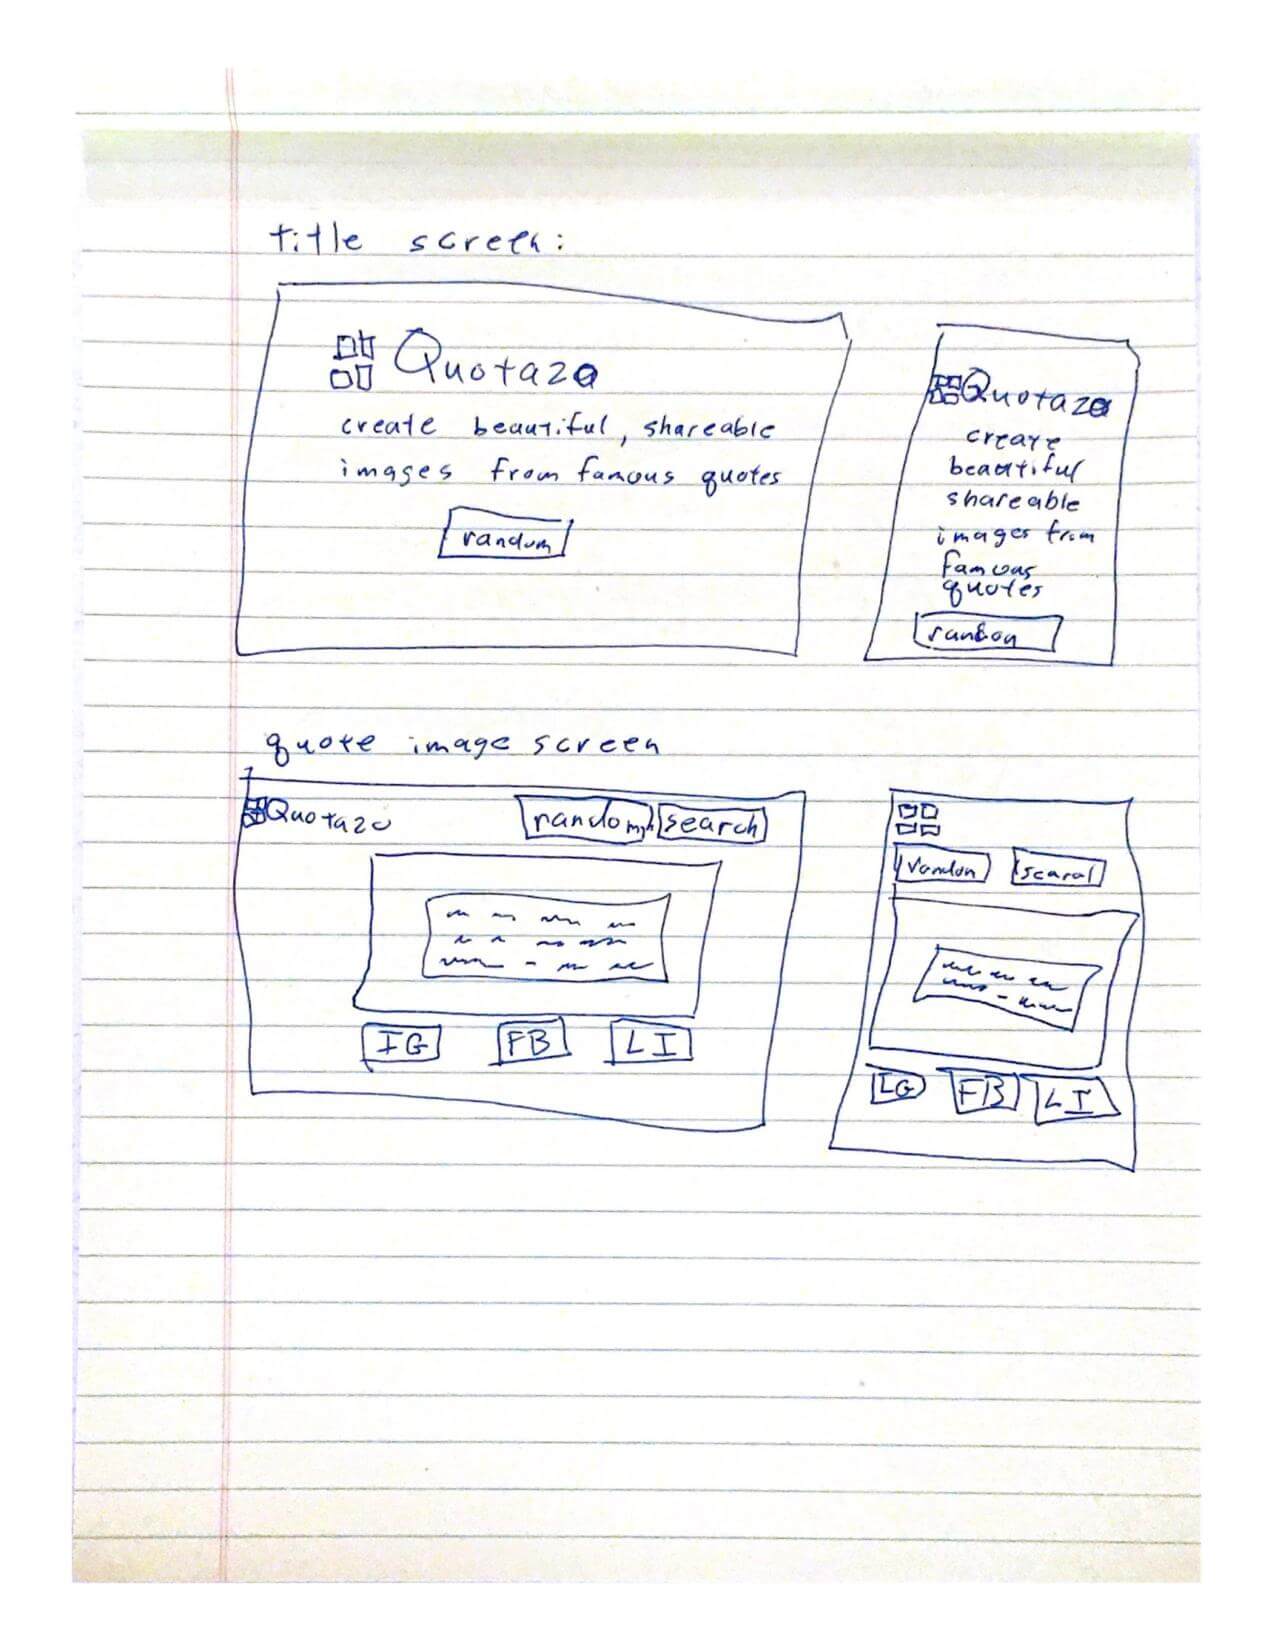 title screen:
Quotazo
create beautiful, shareable
images from famous quotes
random
Quotazo
create
beautiful
shareable
images from
famous
quotes
random
quote image screen
Quotazo
random
search
IG
FB
LI
random
IG
FB
LI